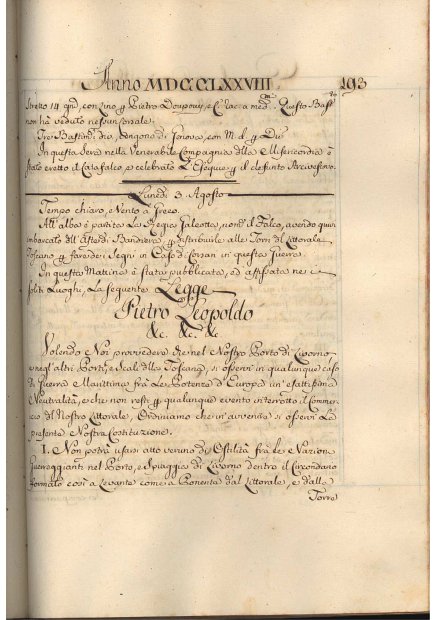 Anno MDCCLXXVIII. 193
Stretto 14 gni, con Zino p Pietro Doupouy, e C. lac. a med. Questo Bast
non hà veduto nessun Corsale.
Tre Bastim.ti div. vengono di Genova, con M. d. p Div.
In questa Sera nella Venerabile Compagnia della Misericordia è
stato eretto il Catafalco, e celebrato L'Esequie p il defunto Arcivescovo.
Lunedì 3. Agosto
Tempo chiaro, e Vento a Greco.
All'alba è partita La Regia Galeotta, nom. il Falco, avendo quivi
imbarcato dell' Bandiera, p distribuirle alle Torri del Littorale
Toscano, p fare dei Segni in Caso di Corsari in questa Guerra.
In questa Mattina è stata pubblicata, ed affissata nei so-
liti Luoghi, La seguente Legge
Pietro Leopoldo
&c. &c. &c.
Volendo Noi provvedere che nel Nostro Porto di Livorno
e negl'altri Porti, e Scali della Toscana, si osservi in qualunque caso
di Guerra Marittima frà Le Potenze d'Europa un'esattissima
Neutralità, e che non resti p qualunque evento interrotto il Commer-
cio del Nostro Littorale, Ordiniamo che in avvenire si osservi La
presente Nostra Costituzione.
I. Non potrà usarsi atto veruno di Ostilità frà Le Nazioni
Guerreggianti nel Porto, e Spiaggia di Livorno dentro il Circondario
formato così a Levante come a Ponente dal Littorale, e dalla
Torre